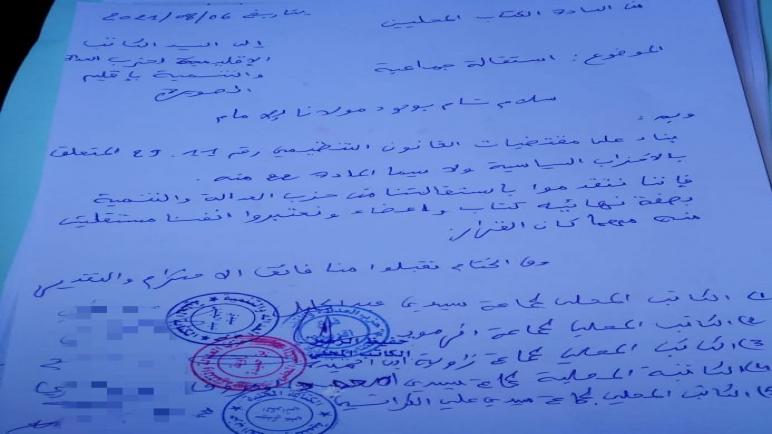 من السادة الكتاب المحليين
بتاريخ 2021/08/06
إلى السيد الكاتب
الإقليمي لحزب العدالة
والتنمية بإقليم
الموضوع: استقالة جماعية
سلام تام بوجود مولانا الإمام
وبعد:
بناء على مقتضيات القانون التنظيمي رقم 29.11 المتعلق
بالأحزاب السياسية ولا سيما المادة 22 منه.
فإننا نتقدموا باستقالتنا من حزب العدالة والتنمية
بصفة نهائية كتاب وأعضاء ونعتبروا أنفسنا مستقلين
منه مهما كان القرار.
وفي الختام تقبلوا منا فائق الاحترام والتقدير
1) الكاتب المحلي لجماعة سيدي
2) الكاتب المحلي لجماعة
3) الكاتب المحلي لجماعة زاوية
4) الكاتبة المحلية لجماعة سيدي
5) الكاتب المحلي لجماعة سيدي علي
الكاتب المحلي